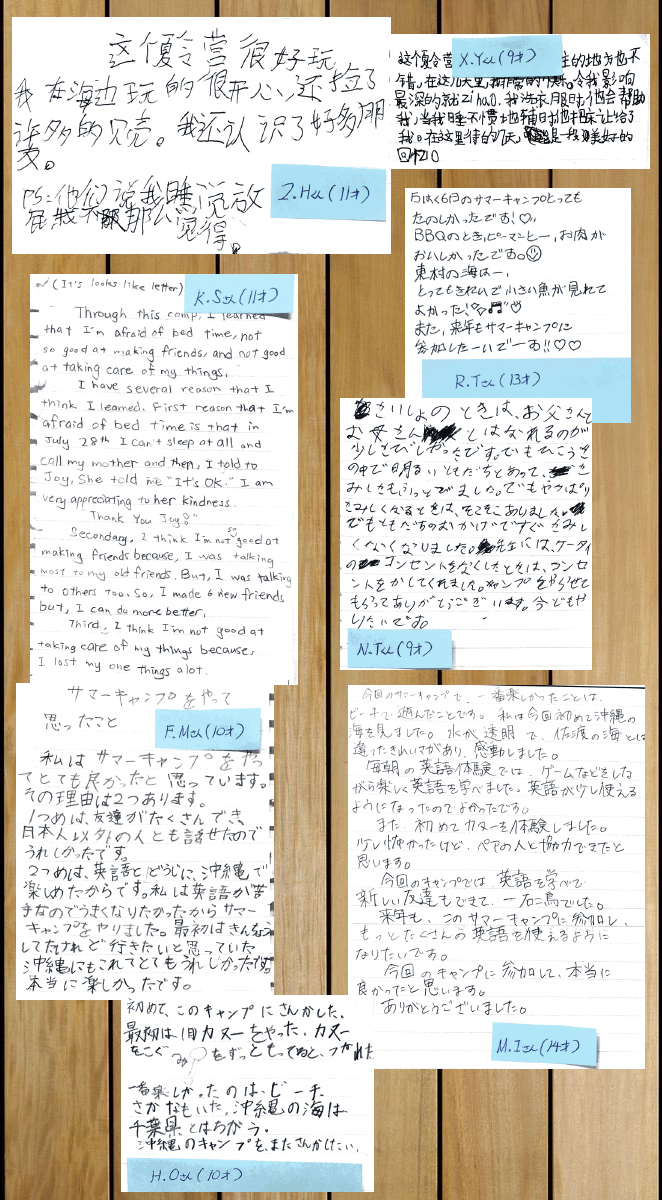 这個夏令营很好玩,
我在海边玩的很开心,还捡了
许多的贝壳。我还认识了好多朋
友。
PS:他们说我睡说放
屁我
那么
觉得。
Z.Hくん(11才)
这个夏令营
X.Yくん(9才)
的地方也不
错,在这几天里,
令我影响
最深的就Zihao,我洗衣服时他会帮助
我,当我睡不惯地铺时他把床让给了
我。在这里待的7天,是一段美好的
回忆。
5泊6日のサマーキャンプとっても
たのしかったです!♡,
BBQのとき、ピーマンとー、お肉が
おいしかったです。☺
東村の海はー、
とってもきれいで小さい魚が見れて
よかった!
また、来年もサマーキャンプに
参加したーいでーす!!♡♡
R.Tさん(13才)
(It's looks like letter)
K.Sさん(11才)
Through this camp, I learned
that I'm afraid of bed time, not
so good at making friends, and not good
at taking care of my things.
I have several reason that I
think I learned. First reason that I'm
afraid of bed time is that in
July 28th I can't sleep at all and
call my mother and then, I told to
Joy. She told me "It's OK." I am
very appreciating to her kindness.
"Thank You Joy!"
Secondary, I think I'm not so good at
making friends because, I was talking
most to my old friends. But, I was talking
to others too. So, I made 6 new friends
but, I can do more better.
Third, I think I'm not good at
taking care of my things because,
I lost my one things alot.
さいしょのときは、お父さんと
お母さんとはなれるのが
少しさびしかったです。でもひこうき
の中で明るいともだちとあって、さ
みしさもふっとびました。でもやっぱり
さみしくなるときは、そこそこありました。
でもともだちのおかげですぐさみし
くなくなりました。先生には、ケータイ
のコンセントをなくしたときは、コンセ
ントをかしてくれました。キャンプをやらせて
もらってありがとうございます。今どもや
りたいです。
N.Tくん(9才)
サマーキャンプをやって
思ったこと
F.Mさん(10才)
私はサマーキャンプをやっ
てとても良かったと思っています。
その理由は2つあります。
1つめは、友達がたくさんでき、
日本人以外の人とも話せたので
うれしかったです。
2つめは、英語とどうじに、沖縄で
楽しめたからです。私は英語が苦
手なのでうまくなりたかったからサマー
キャンプをやりました。最初はきんちょう
してたけれど行きたいと思っていた
沖縄にもこれてとてもうれしかったです。
本当に楽しかったです。
今回のサマーキャンプで、一番楽しかったことは、
ビーチで遊んだことです。私は今回初めて沖縄の
海を見ました。水が透明で、佐渡の海とは
違ったきれいさがあり、感動しました。
毎朝の英語体験では、ゲームなどをしな
がら楽しく英語を学べました。英語が少し使える
ようになったのでよかったです。
また、初めてカヌーを体験しました。
少し怖かったけど、ペアの人と協力できたと
思います。
今回のキャンプでは、英語を学べて
新しい友達もできて、一石二鳥でした。
来年も、このサマーキャンプに参加し、
もっとたくさんの英語を使えるように
なりたいです。
今回のキャンプに参加して、本当に
良かったと思います。
ありがとうございました。
M.Iさん(14才)
初めて、このキャンプにさんかした。
最初は、1日カヌーをやった、カヌー
をこぐ
をずっともってると、つかれた
一番楽しかったのは、ビーチ、
さかなもいた、沖縄の海は
千葉県とはちがう。
沖縄のキャンプを、またさんかしたい。
H.Oさん(10才)